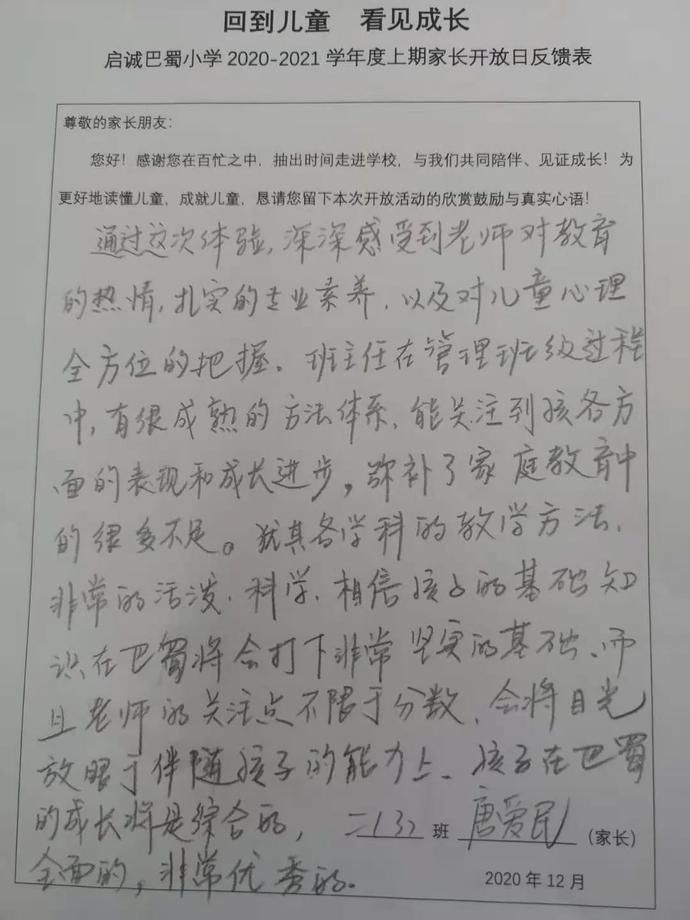 回到儿童 看见成长
启诚巴蜀小学 2020-2021 学年度上期家长开放日反馈表
尊敬的家长朋友：
您好！感谢您在百忙之中，抽出时间走进学校，与我们共同陪伴、见证成长！为
更好地读懂儿童，成就儿童，恳请您留下本次开放活动的欣赏鼓励与真实心语！
通过这次体验，深深感受到老师对教育
的热情，扎实的专业素养，以及对儿童心理
全方位的把握。班主任在管理班级过程
中，有很成熟的方法体系，能关注到孩各方
面的表现和成长进步，弥补了家庭教育中
的很多不足。犹其各学科的教学方法，
非常的活泼、科学，相信孩子的基础知
识在巴蜀将会打下非常坚实的基础、而
且老师的关注点不限于分数，会将目光
放眼于伴随孩子的能力上、孩子在巴蜀
的成长将是综合的，二(3)班 唐爱民（家长）
全面的，非常优秀的。
2020 年 12 月